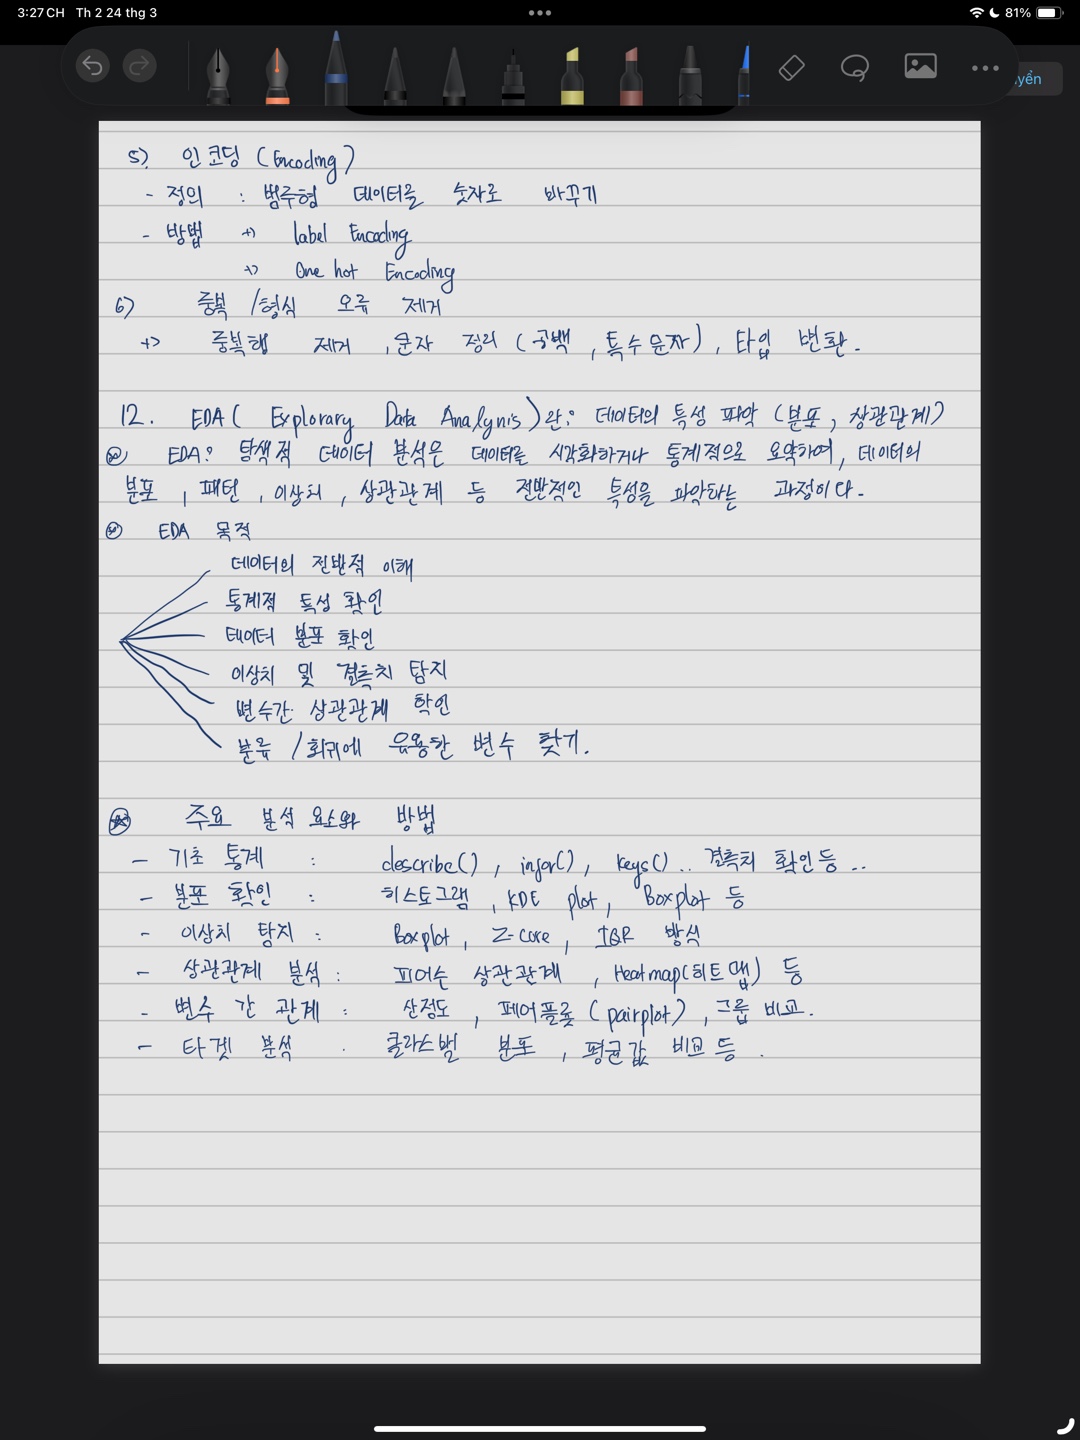 3:27 CH Th 2 24 thg 3
81%
yển
5). 인코딩 (Encoding)
- 정의 : 범주형 데이터를 숫자로 바꾸기
- 방법 +) label Encoding
+) One hot Encoding
6) 중복 /형식 오류 제거
+) 중복행 제거 , 문자 정리 (공백 , 특수문자) , 타입 변환.
12. EDA( Explorary Data Analynis)란? 데이터의 특성 파악 (분포 , 상관관계)
EDA? 탐색적 데이터 분석은 데이터를 시각화하거나 통계적으로 요약하여, 데이터의
분포 , 패턴 , 이상치 , 상관관계 등 전반적인 특성을 파악하는 과정이다.
EDA 목적
데이터의 전반적 이해
통계적 특성 확인
데이터 분포 확인
이상치 및 결측치 탐지
변수간 상관관계 확인
분류 /회귀에 유용한 변수 찾기.
주요 분석 요소와 방법
- 기초 통계 : describe() , infor() , keys() .. 결측치 확인 등 ..
- 분포 확인 : 히스토그램 , KDE plot, Boxplot 등
- 이상치 탐지 : Boxplot , Z-core, IQR 방식
- 상관관계 분석 : 피어슨 상관관계 , Heatmap(히트맵) 등
- 변수 간 관계 : 산점도 , 페어플롯 (pairplot) , 그룹 비교.
- 타겟 분석 . 클라스별 분포 , 평균값 비교 등 .